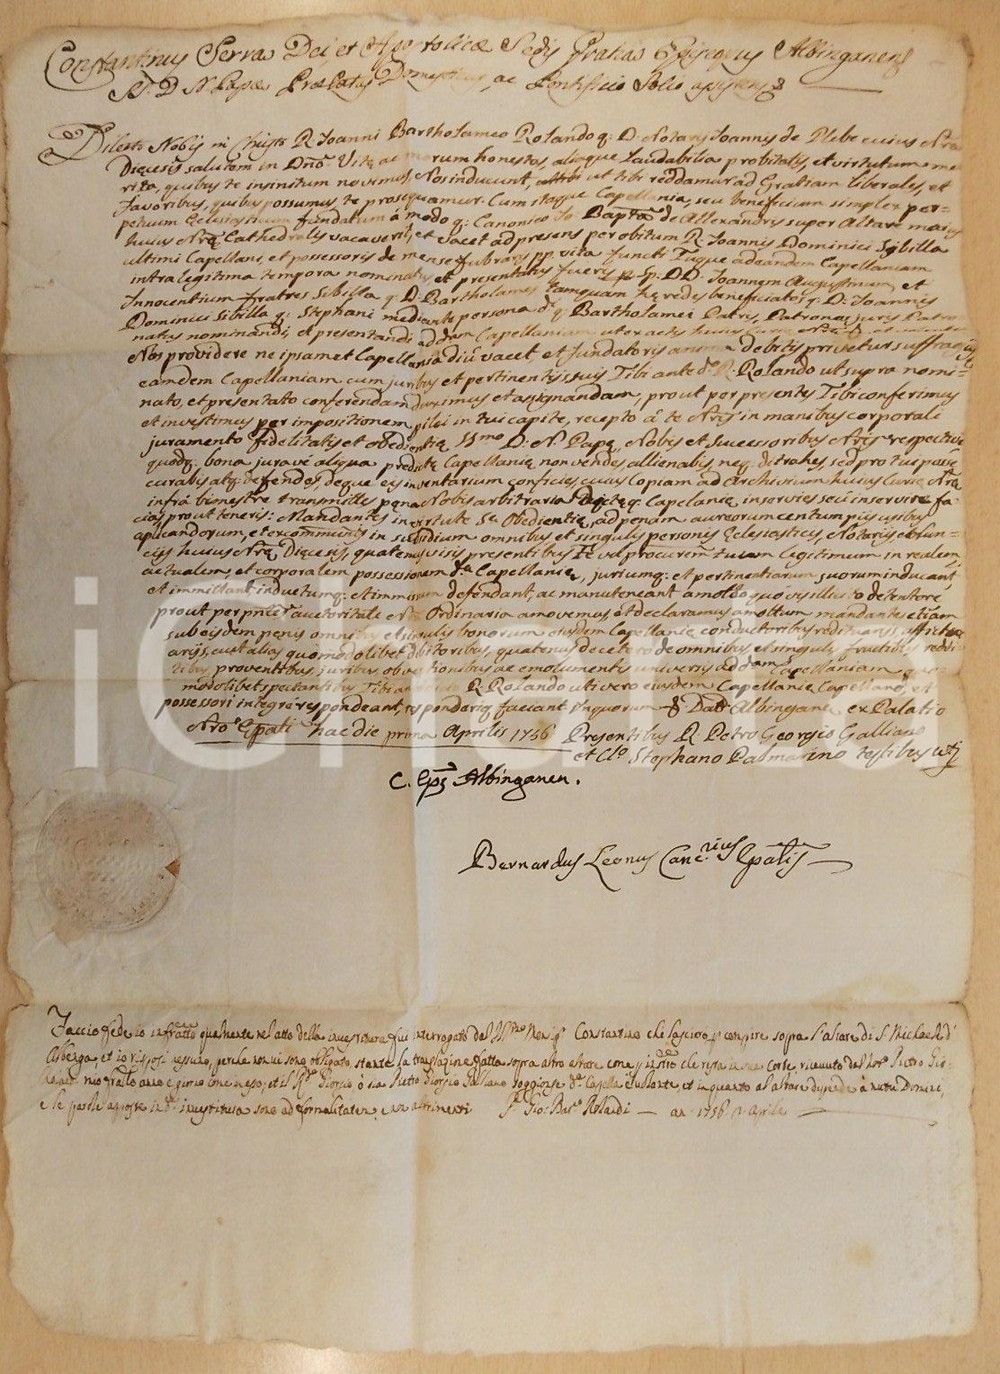 Constantinus Serra Dei et Apostolicæ Sedis Gratia Episcopus Albinganens
S.D.N. Papæ Prælatus Domesticus, ac Pontificio Solio assistens
Dilecto Nobis in Christo R. Joanni Bartholameo Rolando q: D. Notarij Joannis de Plebe cuius Nræ
Diecesis salutem in Dno. Vitæ ac morum honestas, aliaque laudabilia probitatis, et virtutum me
rita, quibus te insinitum novimus, Nos inducunt, ut tibi reddamur ad Gratiam liberales, et
favoribus, quibus possumus, te prosequamur. Cum itaque Capellania, seu beneficium simplex per-
petuum Eclesiasticum fundatum à modo q: Canonico Jo Bapta de Alexandris super Altare maius
huius Nræ Cathedralis vacaverit, et vacet ad presens per obitum R. Joannis Dominici Sibilla
ultimi Capellani, et possessoris de mense februarij pp. vita functi Tuque ad eandem Capellaniam
intra legitima tempora nominatus et presentatus fueris p. Sp. D.D. Joannem Augustinum, et
Innocentium fratres Sibilla q: D. Bartholamei tamquam heredes beneficiatos q: D. Joannis
Dominici Sibilla q: Stephani mediante persona d. q: Bartholamei Patris, Patronos juris Patro
natus nominandi, et presentandi ad dam Capellaniam ut ex actis huius Curiæ Nræ
Nos providere ne ipsamet Capellania diu vacet et fundatoris anima debitis privetur suffragijs
eamdem Capellaniam cum juribus et pertinentijs suis Tibi ante do R. Rolando ut supra nomi-
nato, et presentato conferendam duximus et assignandam, prout per presentes Tibi conferimus
et investimus per impositionem pilei in tui capite, recepto à te Nris in manibus corporali
juramento fidelitatis et obedientiæ SSmo D. N. Papæ, Nobis et Successoribus Nris respective
quodq: bona jura vé aliqua predictæ Capellaniæ non vendes, allienabis, neq. distrahes, sed pro tui posse
curabis atq: defendes, deque eis inventarium conficies, cuius copiam ad Archivium huius Curiæ Nræ
infra bimestre transmittes pena Nobis arbitraria Dictæq. Capelaniæ inservies seu inservire fa-
cias prout teneris: Mandantes in virtute Sæ Obedientiæ, ad penam aureorum centum pijs usibus
aplicandorum, et excommunis in subsidium omnibus et singulis personis Eclesiasticis, Notarijs et Nun-
cijs huius Nræ Diecesis, quatenus visis presentibus Te vel procurem tuum legitimum in realem,
actualem, et corporalem possessionem dæ Capellaniæ, juriumq: et pertinentiarum suorum inducant
et immittant, inductumq: et immissum defendant, ac manuteneant amoto quovis illicito detentore
prout per pntes auctoritate Nra Ordinaria amovemus, et declaramus amotum mandantes etiam
sub eisdem penis omnibus et singulis bonorum eiusdem Capellaniæ conductoribus reddituarijs, affictua
arijs, aut alias quomodolibet debitoribus, quatenus de cetero de omnibus et singulis fructibus reddi
tibus proventibus, juribus, obventionibus ac emolumentis universis ad dam Capellaniam quo
modolibet spectantibus Tibi R. Rolando uti vero eiusdem Capellaniæ Capellano, et
possessori integre respondeant, responderiq. faciant In quorum Datt Albinganæ ex Palatio
Nro Epali hac die prima Aprilis 1756 Presentibus R. Petro Georgio Galliano
et Clo Stephano Palmarino testibus
C. Eps Albinganen.
Bernardus Leonus Cancrius Epalis
Faccio fede io infratto qualmente nel atto della investitura fui interrogato da Constantino
Albenga, et io risposi perche non vi sono obligato, stante la traslazione fatta sopra altro altare
Pietro Giorgio Galliano soggionse da Capella et in quanto al altare
e le parole aposte in da investitura sono ad formalitatem, e non altrimenti P. Gio: Barto Rolandi an. 1756 p. Aprile